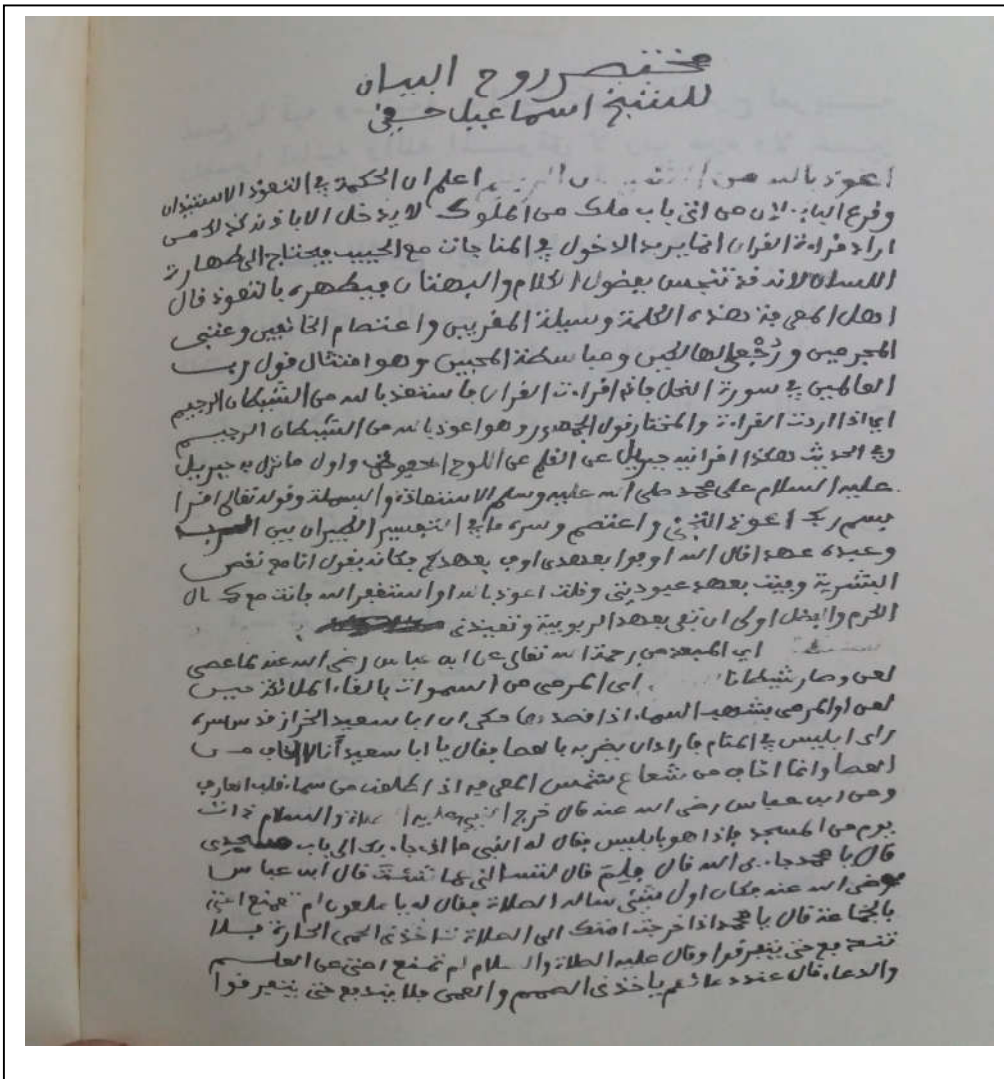 مختصر روح البيان
للشيخ اسماعيل حقي
اعوذ بالله من الشيطان الرجيم اعلم ان الحكمة في التعوذ الاستئذان
وقرع الباب لان من اتى باب ملك من الملوك لا يدخل الا باذنه كذلك من
اراد قراءة القران انما يريد الدخول في المناجات مع الحبيب فيحتاج الى طهارة
اللسان لانه قد تنجس بفضول الكلام والبهتان فيطهره بالتعوذ قال
اهل المعرفة هذه الكلمة وسيلة المقربين واعتصام الخائفين وعتبى
المجرمين ورُجْعى الهالكين ومباسطة المحبين وهو امتثال قول رب
العالمين في سورة النحل فاذا قرات القران فاستعذ بالله من الشيطان الرجيم
اي اذا اردت القراءة والمختار قول الجمهور وهو اعوذ بالله من الشيطان الرجيم
وفي الحديث هكذا اقرانيه جبريل عن القلم عن اللوح المحفوظ واول ما نزل به جبريل
عليه السلام على محمد صلى الله عليه وسلم الاستعاذة والبسملة وقوله تعالى اقرا
بسم ربك اعوذ التجئ واعتصم وسره ما في التفسير الكبير ان بين الرب
وعبده عهدا قال الله اوفوا بعهدي اوف بعهدكم فكانه يقول انا مع نقص
البشرية وفيت بعهد عبوديتي وقلت اعوذ بالله او استغفر الله فانت مع كمال
الكرم والفضل اولى ان تفي بعهد الربوبية وتعيذني
اي المبعد من رحمة الله تعالى عن ابن عباس رضي الله عنه لما عصى
لعن وصار شيطانا اي المرمي من السموات بالقاء الملائكة حين
لعن او المرمي بشهب السماء اذا قصدها حكي ان ابا سعيد الخراز قدس سره
راى ابليس في المنام فاراد ان يضربه بالعصا فقال يا ابا سعيد أنا لا اخاف من
العصا وانما اخاف من شعاع شمس المعرفة اذا طلعت من سماء قلب العارف
وعن ابن عباس رضي الله عنه قال خرج النبي عليه الصلاة والسلام ذات
يوم من المسجد فاذا هو بابليس فقال له النبي ما الذي جاء بك الى باب مسجدي
قال يا محمد جاء بي الله قال فلِمَ قال لتسالني عما شئتَ قال ابن عباس
رضي الله عنه فكان اول شيئ ساله الصلاة فقال له يا ملعون لم تمنع امتي
بالجماعة قال يا محمد اذا خرجت امتك الى الصلاة تاخذني الحمى الحارة فلا
تندفع حتى يتفرقوا وقال عليه الصلاة والسلام لم تمنع امتي عن العلم
والدعاء قال عند دعائهم ياخذني الصمم والعمى فلا يندفع حتى يتفرقوا